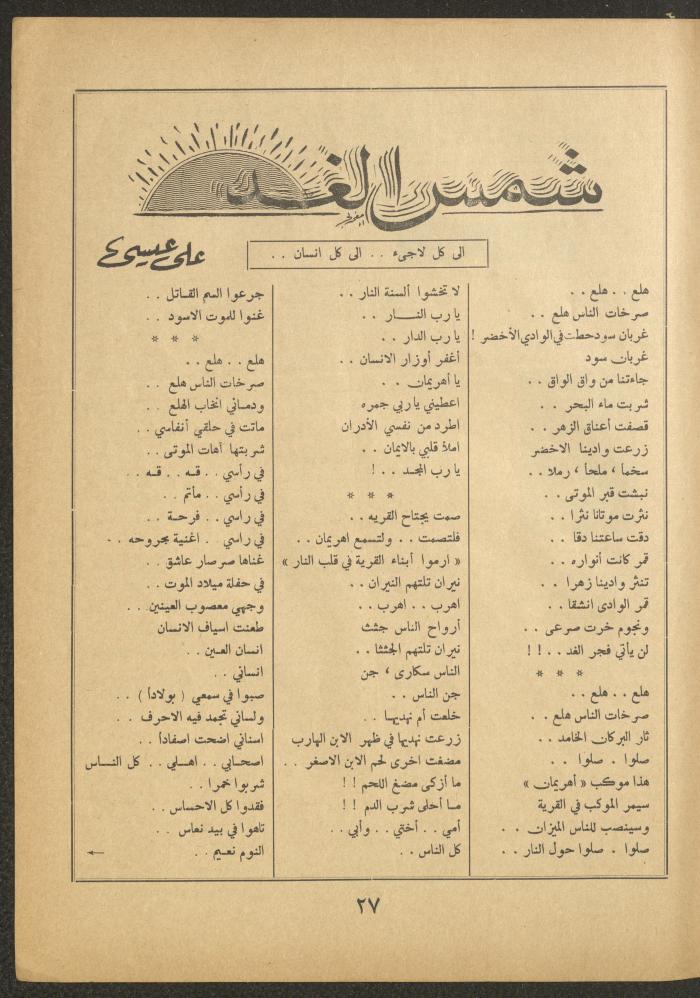 شمس الغد
الى كل لاجىء . . الى كل انسان . .
علي عيسى
هلع . . هلع . .
صرخات الناس هلع . .
غربان سود حطت في الوادي الأخضر !
غربان سود
جاءتنا من واق الواق . .
شربت ماء البحر . .
قصفت أعناق الزهر . .
زرعت وادينا الاخضر
سخما ، ملحاً ، رملا . .
نبشت قبر الموتى . .
نثرت موتانا نثرا . .
دقت ساعتنا دقا . .
قمر كانت أنواره . .
تنثر وادينا زهرا . .
قمر الوادى انشقا . .
ونجوم خرت صرعى . .
لن يأتي فجر الغد . . ! !
* * *
هلع . . هلع . .
صرخات الناس هلع . .
ثار البركان الخامد . .
صلوا . صلوا . .
هذا موكب « أهريمان »
سيمر الموكب في القرية
وسينصب للناس الميزان . .
صلوا . صلوا حول النار . .
لا تخشوا ألسنة النار . .
يا رب النـــار . .
يا رب الدار . .
أغفر أوزار الانسان . .
يا أهريمان . .
اعطيني يا ربي جمره
اطرد من نفسي الأدران
املأ قلبي بالايمان . .
يا رب المجـد . . !
* * *
صمت يجتاح القريه . .
فلتصمت . . ولتسمع اهريمان . .
« ارموا أبناء القرية في قلب النار »
نيران تلتهم النيران . .
اهرب . . اهرب . .
أرواح الناس جثث
نيران تلتهم الجثثا . .
الناس سكارى ، جن
جن الناس . .
خلعت أم نهديهـا . .
زرعت نهديها في ظهر الابن الهارب
مضغت اخرى لحم الابن الاصغر . .
ما أزكى مضغ اللحم ! !
مـا أحلى شرب الدم ! !
أمي . . أختي . . وأبي . .
كل الناس . .
جرعوا السم القـاتل . .
غنوا للموت الاسود . .
* * *
هلع . . هلع . .
صرخات الناس هلع . .
ودمـاني انخاب الهلع . .
ماتت في حلقي أنفاسي . .
شربتها آهات الموتى . .
في رأسي . . قـه . . قـه . .
في رأسي . . مأتم . .
في راسي . . فرحـة . .
في راسي . . اغنية مجروحه . .
غناها صرصار عاشق . .
في حفلة ميلاد الموت . .
وجهي معصوب العينين . .
طعنت اسياف الانسان
انسان العـين . .
انساني . .
صبوا في سمعي ( بولاداً ) . .
ولساني تجمد فيه الاحرف . .
اسناني اضحت اصفاداً . .
اصحـابي . . اهـلي . . كل النـاس
شربوا خمرا . .
فقدوا كل الاحساس . .
تاهوا في بيد نعاس . .
النوم نعـيم . .
←
٢٧